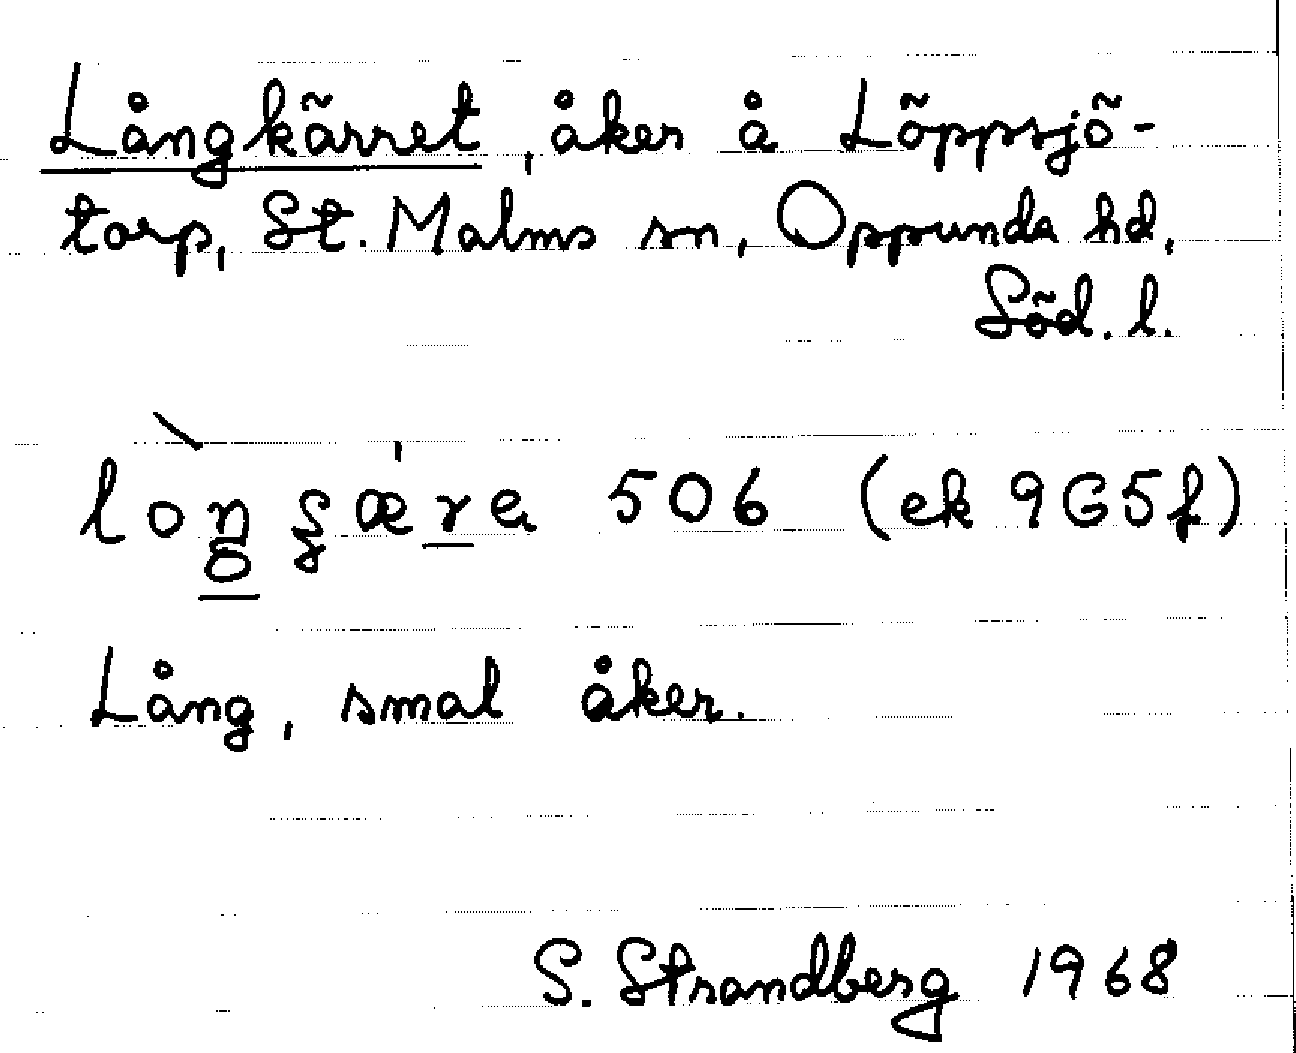 Långkärret, åker å Löppsjö-
torp, St. Malms sn, Oppunda hd,
Söd. l.
506 (ek 9G5f)
Lång, smal åker.
S. Strandberg 1968